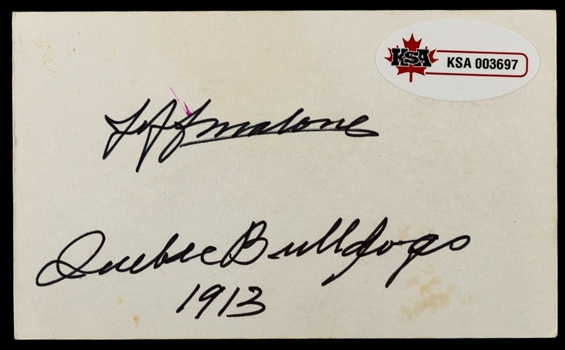 KSA KSA 003697
Jeff Malone
Quebec Bulldogs
1913